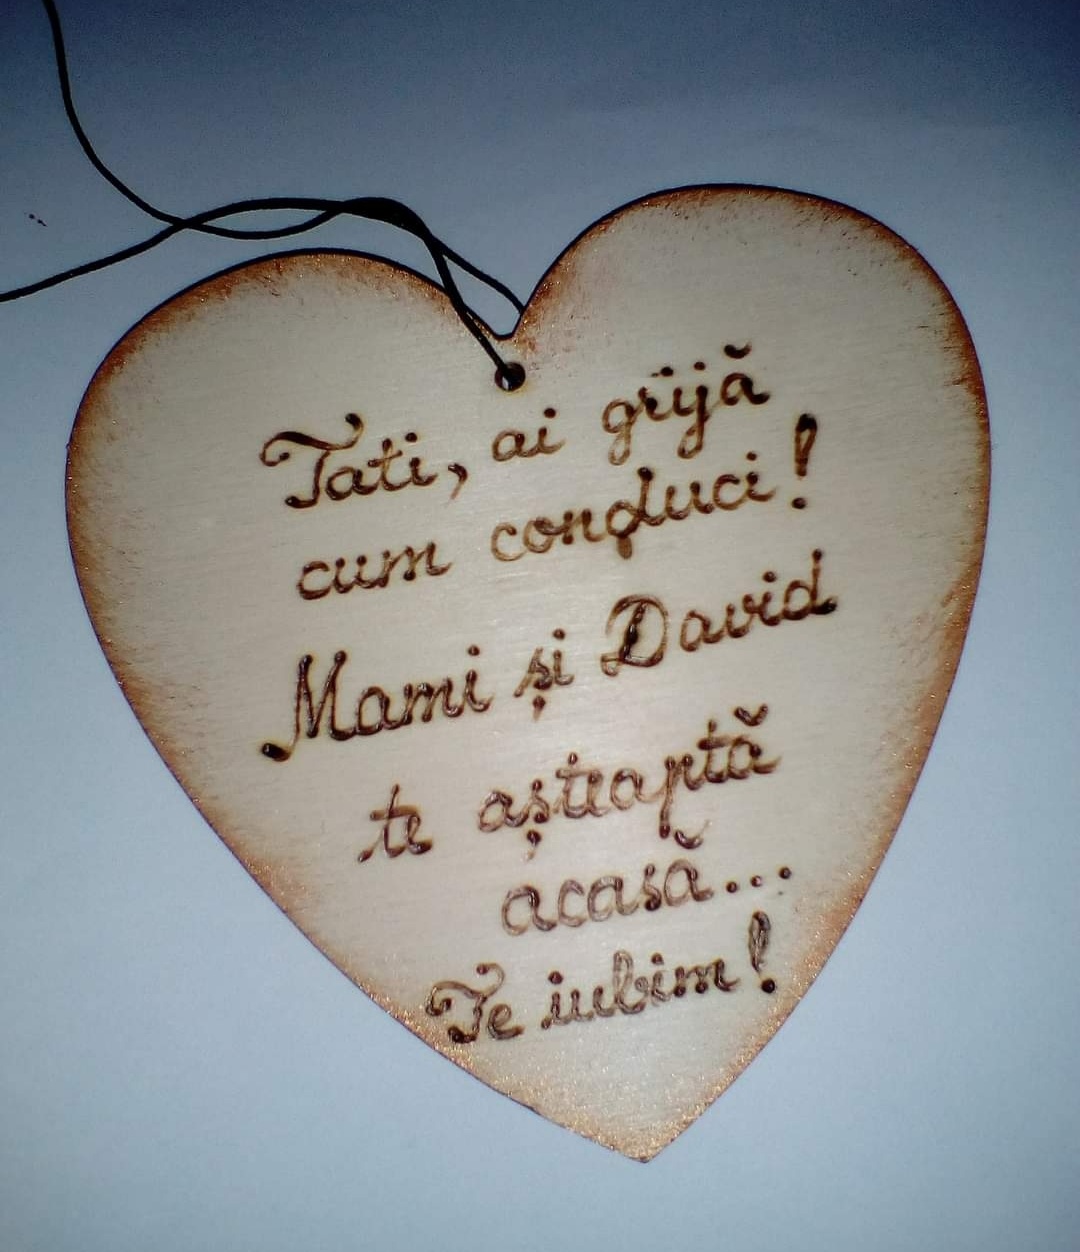 Tati, ai grijă
cum conduci!
Mami și David
te așteaptă
acasă...
Te iubim!